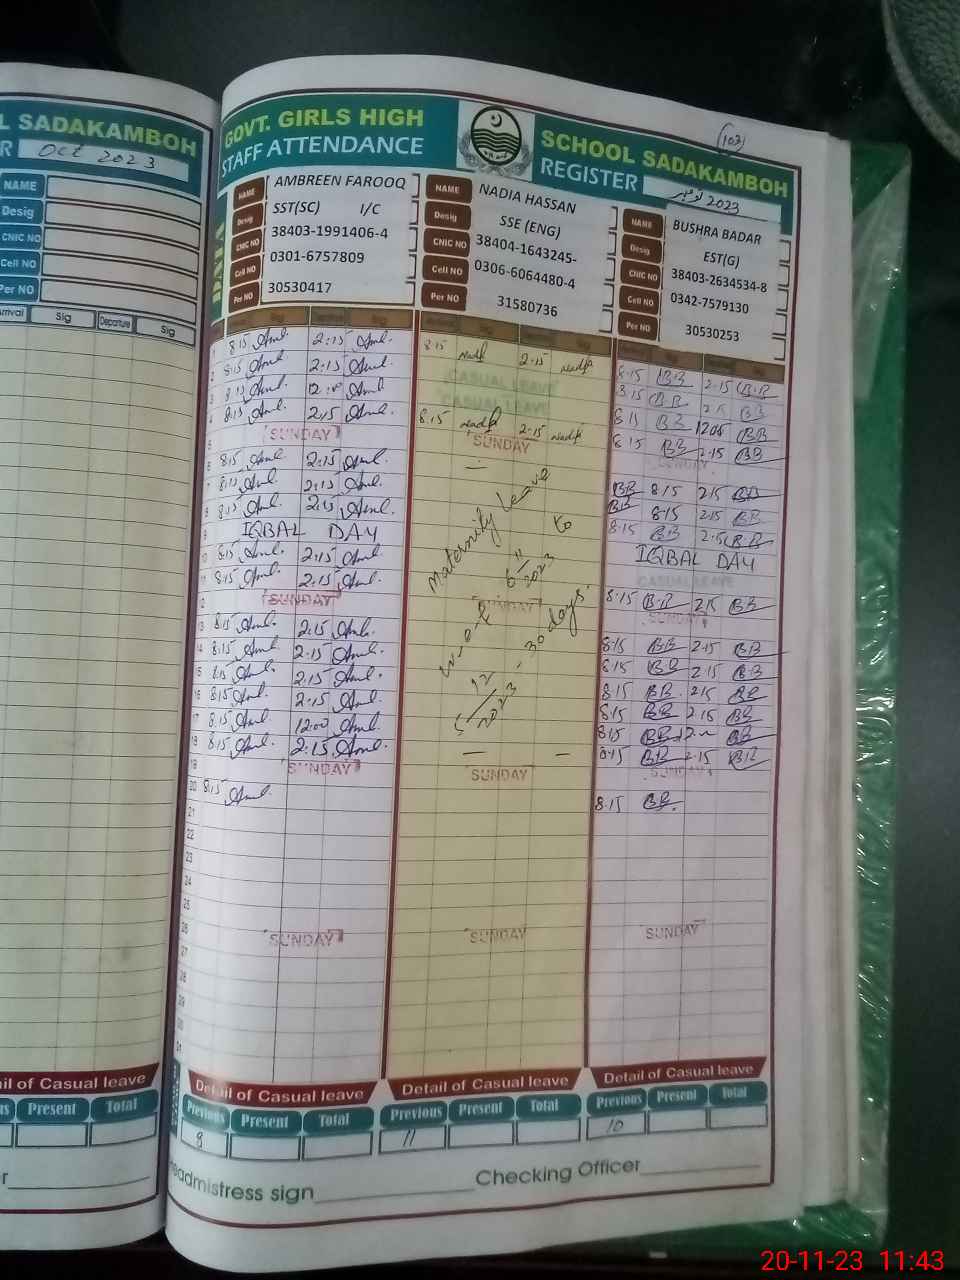 L SADAKAMBOH
R Oct 2023
NAME
Desig
CNIC NO
Cell NO
Per NO
Arrival Sig Departure Sig
(103)
GOVT. GIRLS HIGH SCHOOL SADAKAMBOH
STAFF ATTENDANCE REGISTER نومبر 2023
NAME AMBREEN FAROOQ
Desig SST(SC) I/C
CNIC NO 38403-1991406-4
Cell NO 0301-6757809
Per NO 30530417
NAME NADIA HASSAN
Desig SSE (ENG)
CNIC NO 38404-1643245-
Cell NO 0306-6064480-4
Per NO 31580736
NAME BUSHRA BADAR
Desig EST(G)
CNIC NO 38403-2634534-8
Cell NO 0342-7579130
Per NO 30530253
1 8:15 2:15 8:15 2:15 8:15 BB 2:15 BB
2 8:15 2:15 CASUAL LEAVE 8:15 BB 2:15 BB
3 8:15 12:00 CASUAL LEAVE 8:15 BB 1205 BB
4 8:15 2:15 8:15 2:15 8:15 BB 2:15 BB
5 SUNDAY SUNDAY SUNDAY
6 8:15 2:15 BB 8:15 2:15 BB
7 8:15 2:15 BB 8:15 2:15 BB
8 8:15 2:15 8:15 BB 2:15 BB
9 IQBAL DAY IQBAL DAY
10 8:15 2:15 CASUAL LEAVE
11 8:15 2:15 8:15 BB 2:15 BB
12 SUNDAY SUNDAY SUNDAY
13 8:15 2:15 8:15 BB 2:15 BB
14 8:15 2:15 8:15 BB 2:15 BB
15 8:15 2:15 8:15 BB 2:15 BB
16 8:15 2:15 8:15 BB 2:15 BB
17 8:15 12:00 8:15 BB BB
18 8:15 2:15 8:15 BB 2:15 BB
19 SUNDAY SUNDAY SUNDAY
20 8:15 8:15 BB
Maternity leave
w-e-f 6/11/2023 to
5/12/2023, 30 days.
21
22
23
24
25
26 SUNDAY SUNDAY SUNDAY
27
28
29
30
31
ail of Casual leave
Present Total
Detail of Casual leave Detail of Casual leave Detail of Casual leave
Previous Present Total Previous Present Total Previous Present Total
8 11 10
eadmistress sign Checking Officer
20-11-23 11:43